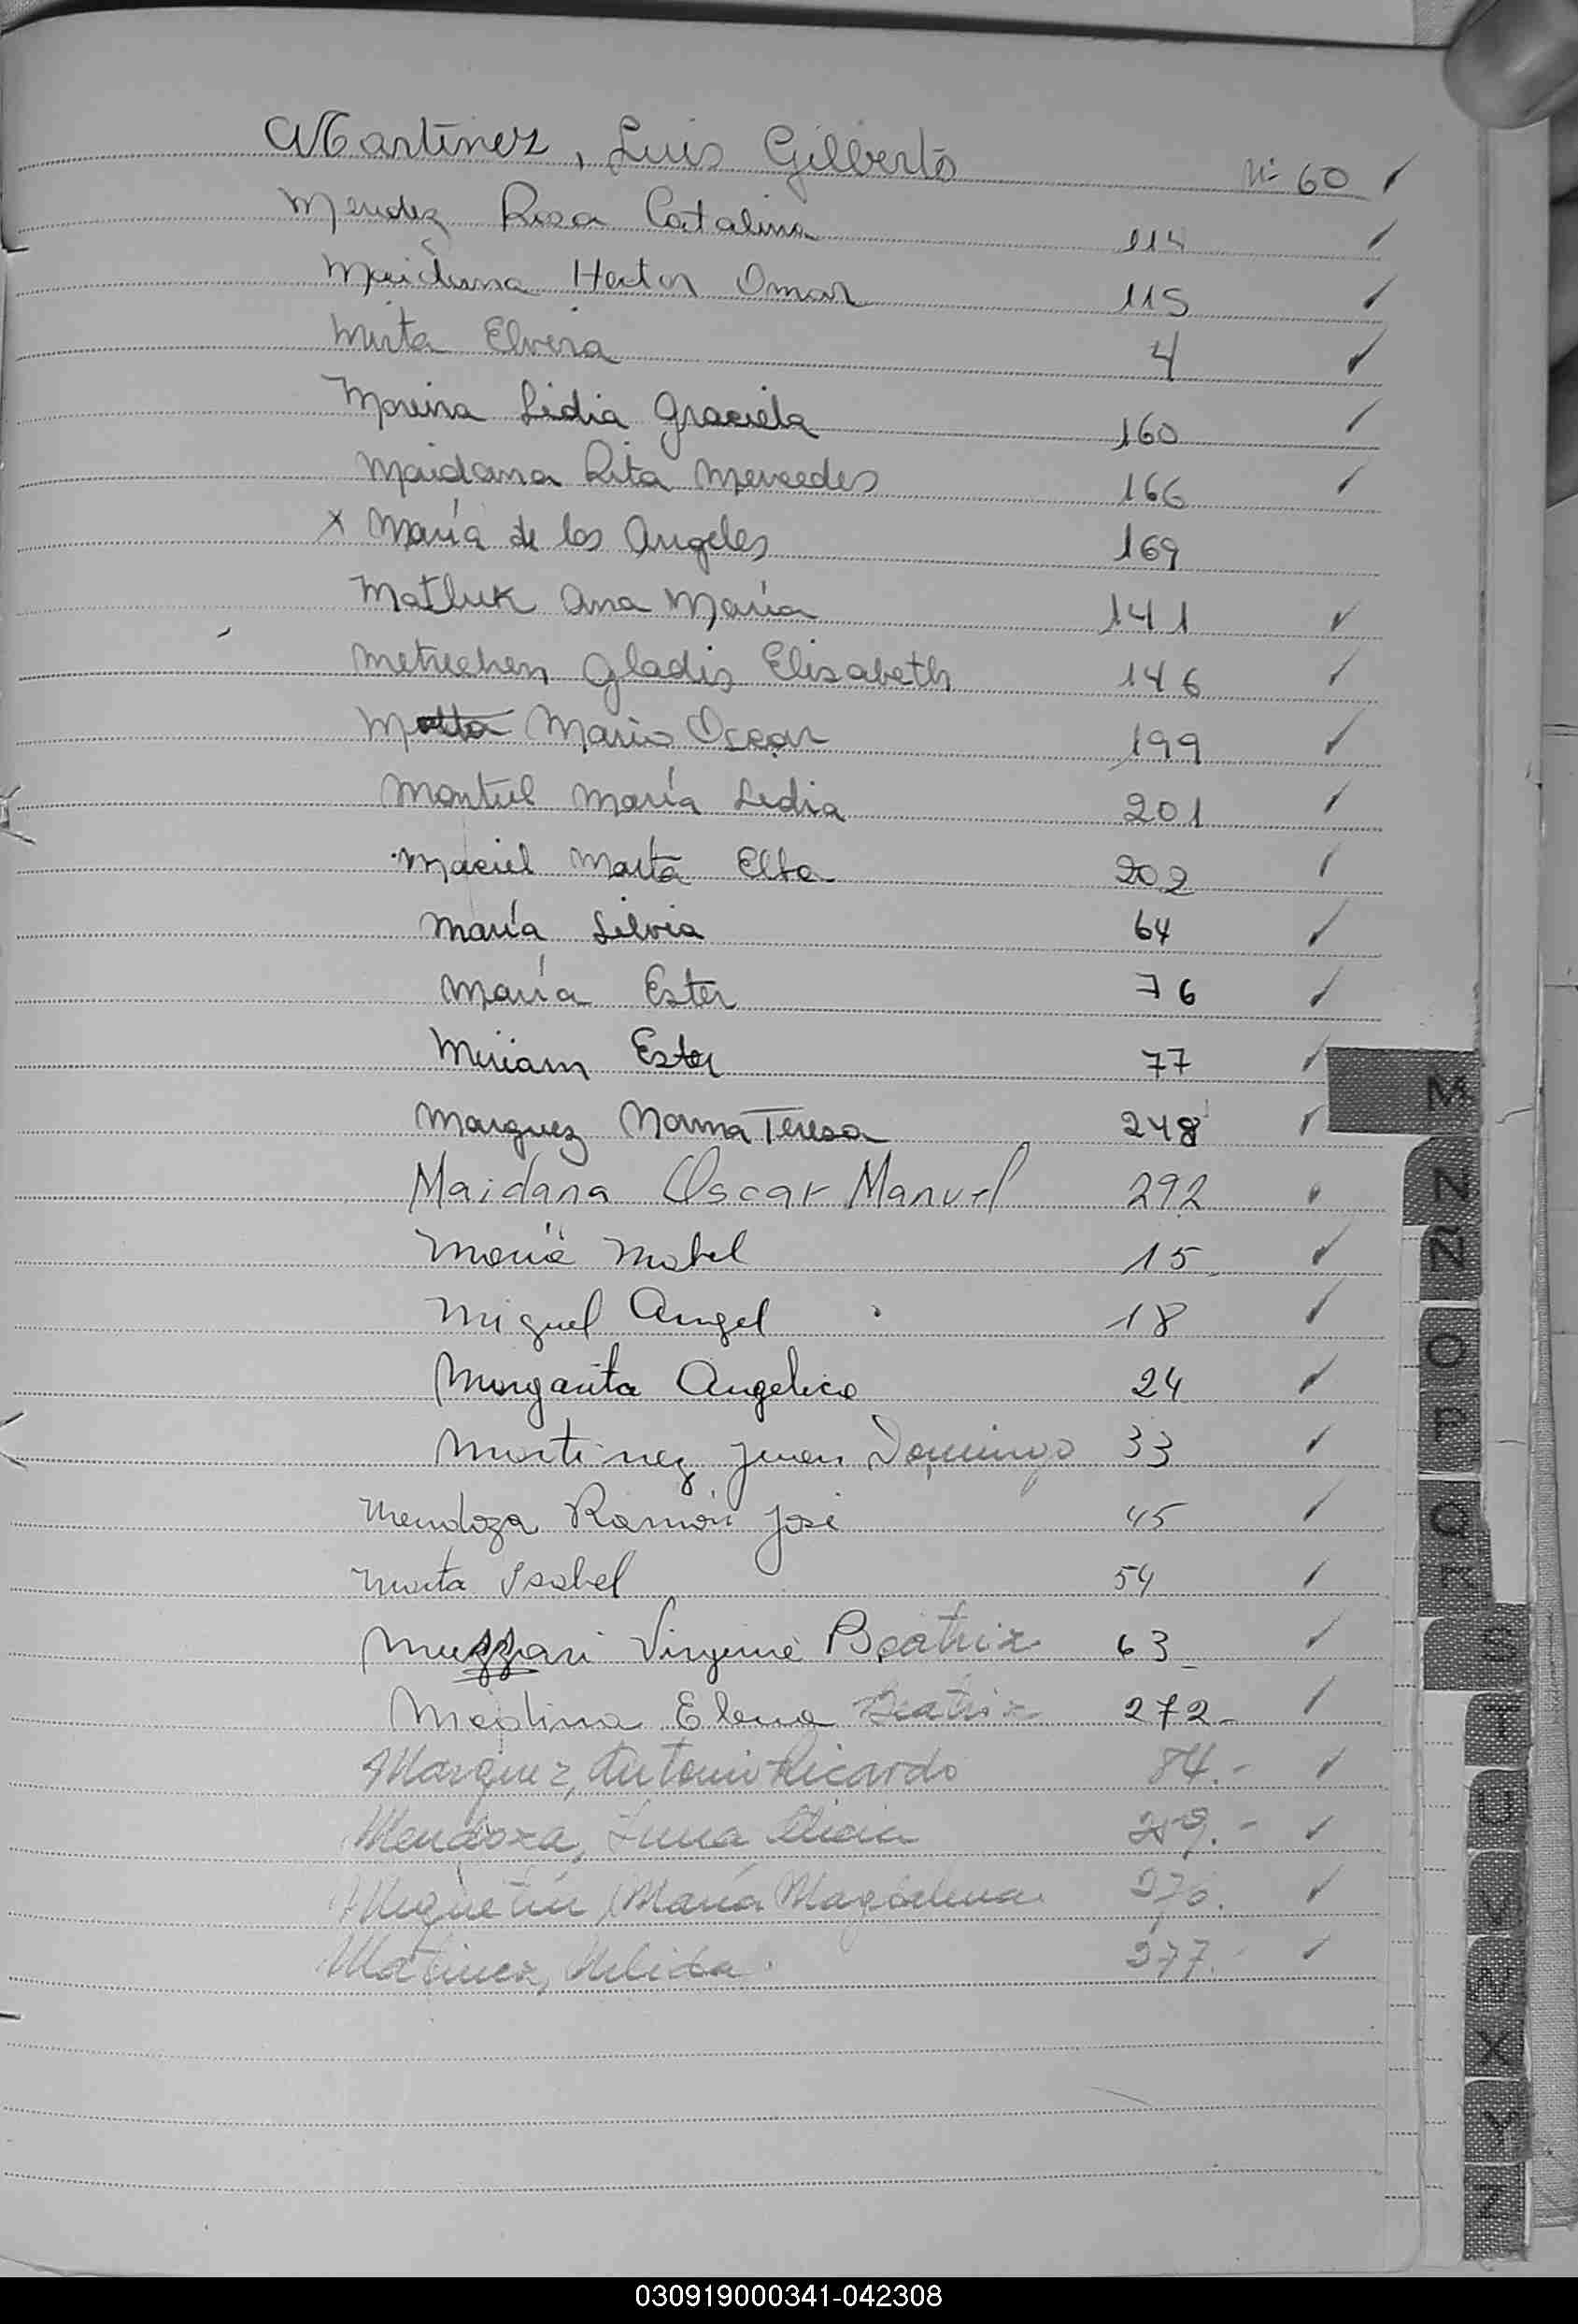 Martinez, Luis Gilberto Nº 60 ✓
Mendez Rosa Catalina 114 ✓
Maidana Hector Omar 115 ✓
Mirta Elvira 4 ✓
Moreira Lidia Graciela 160 ✓
Maidana Rita Mercedes 166 ✓
x María de los Angeles 169
Matluk Ana María 141 ✓
Metrechen Gladis Elisabeth 146 ✓
Mario Oscar 199 ✓
Montiel María Lidia 201 ✓
Maciel Marta Elba 202 ✓
María Silvia 64 ✓
María Ester 76 ✓
Miriam Ester 77 ✓
Marquez Norma Teresa 248 ✓
Maidana Oscar Manuel 292
María Mabel 15 ✓
Miguel Angel 18 ✓
Margarita Angelica 24 ✓
Martinez Juan Domingo 33 ✓
Mendoza Ramón José 45 ✓
Marta Isabel 54 ✓
Muzzari Virginia Beatriz 63 ✓
Medina Elena Beatriz 272 ✓
Marquez, Antonio Ricardo 84.- ✓
Mendoza, Alicia ✓
María Magdalena ✓
277.- ✓
M
N
Ñ
O
P
Q
R
S
T
U
V
W
X
Y
Z
030919000341-042308